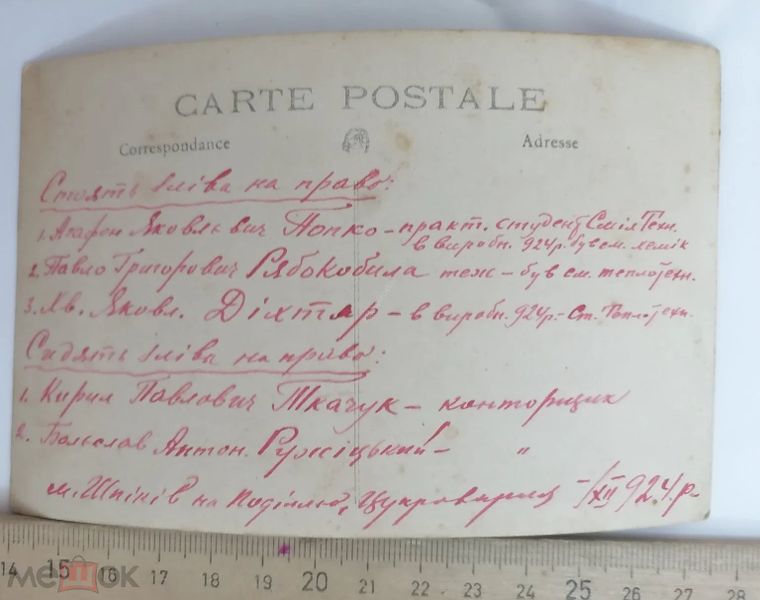 CARTE POSTALE
Correspondance Adresse
Стоять зліва на право:
1. Агафон Яковльевич Попко – практ. студент Сміл Техн.
в виробн. 924р. був см. хемік
2. Павло Григорович Рябокобила теж – був см. теплотехн.
3. Ів. Яковл. Діхтяр – в виробн. 924р. – Ст. Теплотехн.
Сидять зліва на право:
1. Кирил Павлович Ткачук – конторщик
2. Болеслав Антон. Ружіцький – "
м. Шпіків на Поділлю, Цукроварня –/XII 924.р.
14 15 16 17 18 19 20 21 22 23 24 25 26 27 28
мешок